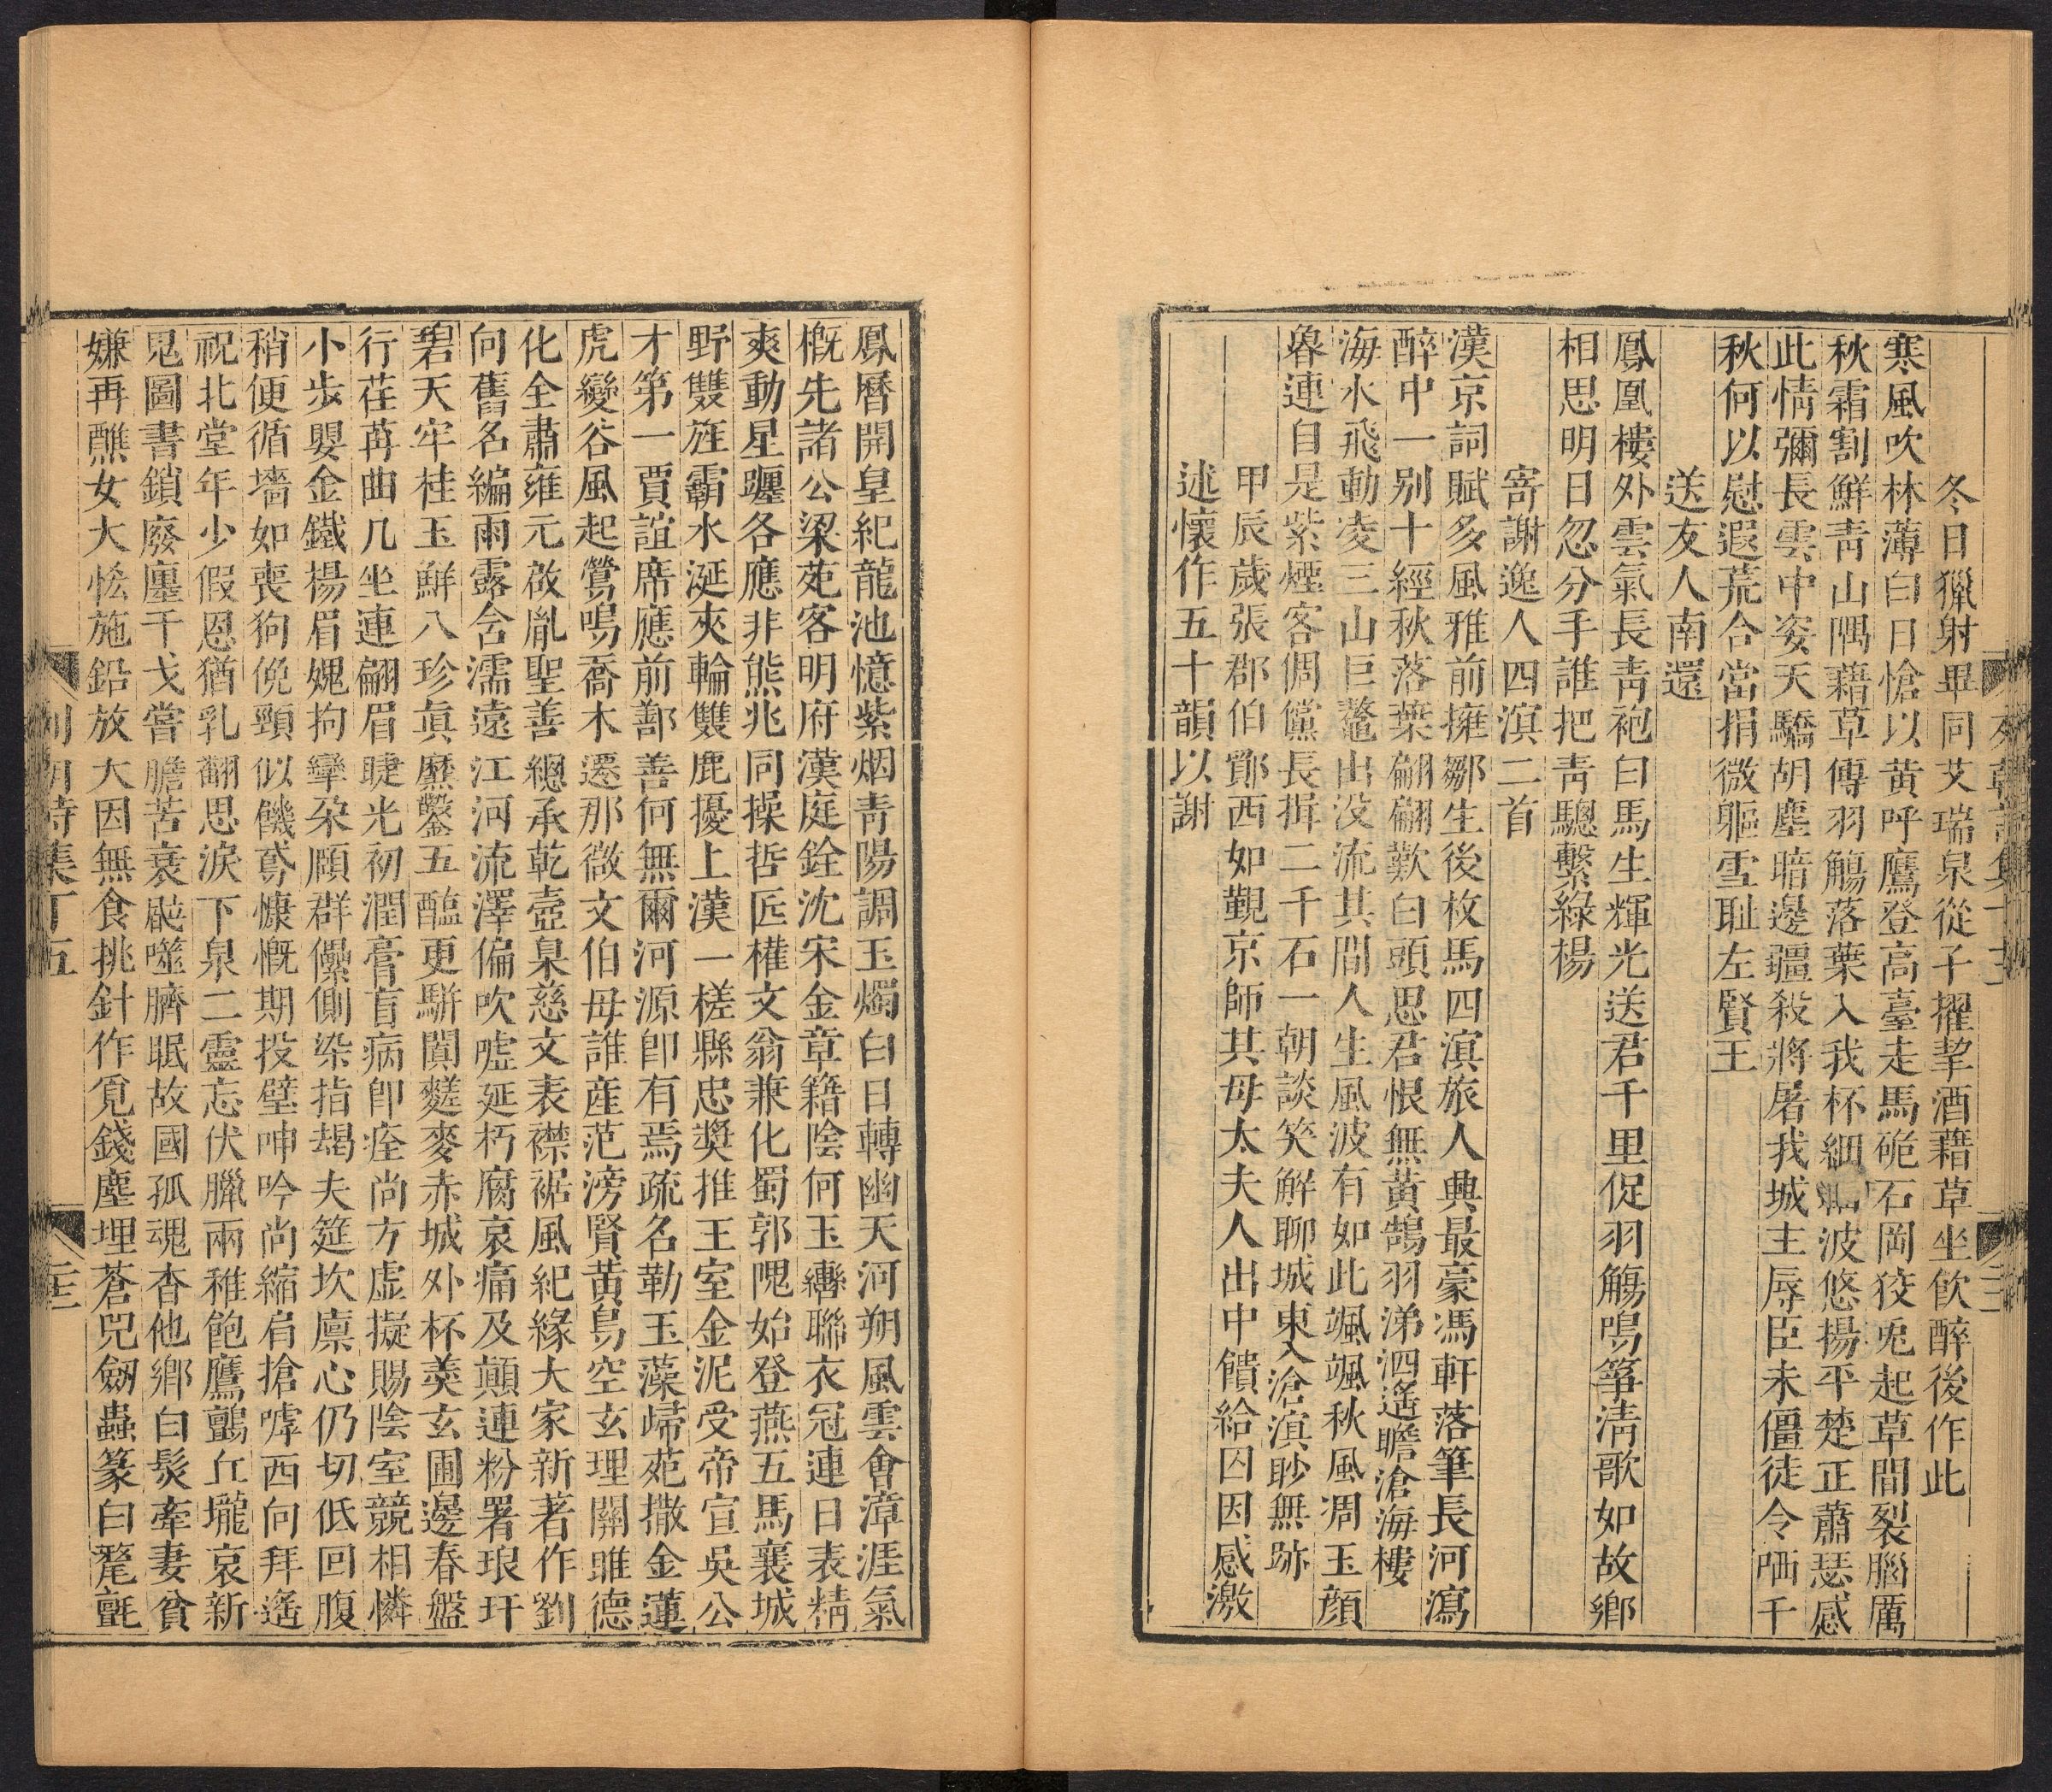 冬日獵射畢同艾瑞泉從子擢挈酒藉草坐飲醉後作此
寒風吹林薄白日愴以黃呼鷹登高臺走馬硊石岡狡兎起草間裂腦厲
秋霜割鮮靑山隅藉草傳羽觴落葉入我杯細波悠揚平楚正蕭瑟感
此情彌長雲中姿天驕胡塵暗邊疆殺將屠我城主辱臣未僵徒令哂千
秋何以慰遐荒合當捐微軀雪耻左賢王
送友人南還
鳳凰樓外雲氣長靑袍白馬生輝光送君千里促羽觴鳴箏淸歌如故鄉
相思明日忽分手誰把靑驄繫綠楊
寄謝逸人四溟二首
漢京詞賦多風雅前擁鄒生後枚馬四溟旅人興最豪馮軒落筆長河瀉
醉中一别十經秋落葉翩翩歎白頭思君恨無黃鵠羽涕泗遙瞻滄海樓
海水飛動凌三山巨鼇出没流其間人生風波有如此颯颯秋風凋玉顔
魯連自是紫煙客倜儻長揖二千石一朝談笑解聊城東入滄溟眇無跡
甲辰歲張郡伯鄖西如覲京師其母太夫人出中饋給囚因感激
述懷作五十韻以謝
鳳曆開皇紀龍池憶紫烟靑陽調玉燭白日轉幽天河朔風雲會漳涯氣
槪先諸公梁苑客明府漢庭銓沈宋金章籍陰何玉轡聯衣冠連日表精
爽動星躔各應非熊兆同操哲匠權文翁兼化蜀郭隗始登燕五馬襄城
野雙旌霸水涎夾輪雙鹿擾上漢一槎縣忠奬推王室金泥受帝宣吳公
才第一賈誼席應前鄯善何無爾河源卽有焉疏名勒玉藻歸苑撒金蓮
虎變谷風起鶯鳴喬木遷那微文伯母誰産范滂賢黃鳥空玄理關雎德
化全肅雍元啟胤聖善總承乾壼臬慈文表襟裾風紀緣大家新著作劉
向舊名編雨露含濡遠江河流澤偏吹噓延朽腐哀痛及顛連粉署琅玕
碧天牢桂玉鮮八珍眞麋鑿五醞更駢闐麰麥赤城外杯羹玄圃邊春盤
行荏苒曲几坐連翩眉睫光初潤膏肓病卽痊尚方虛擬賜陰室競相憐
小步嬰金鐵揚眉媿拘攣朶頤群儽側染指朅夫筵坎廪心仍切低回腹
稍便循墻如喪狗俛頸似饑鳶慷慨期投璧呻吟尚縮肩搶嘑西向拜遙
祝北堂年少假恩猶乳翻思淚下泉二靈忘伏臘兩稚飽鷹鸇丘壠哀新
鬼圖書鎖廢廛干戈嘗膽苦衰齓噬臍眠故國孤魂杳他鄉白髮牽妻貧
嫌再醮女大恡施鉛放犬因無食挑針作覓錢塵埋蒼兕劒蟲篆白氂氈